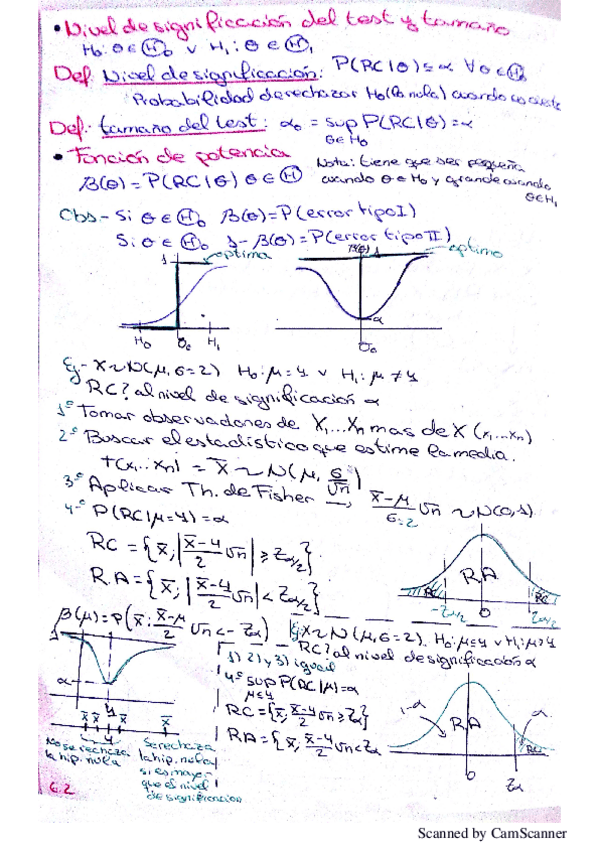 • Nivel de significación del test y tamaño
H₀: θ ∈ Ⓗ₀ v H₁: θ ∈ Ⓗ₁
Def. Nivel de significación: P(RC|θ) ≤ α ∀θ ∈ Ⓗ₀
Probabilidad de rechazar H₀ (la nula) cuando
Def.- tamaño del test: α₀ = sup P(RC|θ) = α
θ∈H₀
• Función de potencia
β(θ) = P(RC|θ) θ ∈ Ⓗ
Nota: tiene que ser pequeña
cuando θ ∈ H₀ y grande cuando
θ∈H₁
Obs.- Si θ ∈ Ⓗ₀ β(θ) = P(error tipo I)
Si θ ∈ Ⓗ₀ 1 - β(θ) = P(error tipo II)
1 optima
β(θ) 1 optimo
α
H₀ θ₀ H₁
θ₀
Ej.- X ~ N(μ, σ=2) H₀: μ = 4 v H₁: μ ≠ 4
RC? al nivel de significación α
1º Tomar observaciones de X₁...Xₙ mas de X (x₁...xₙ)
2º Buscar el estadístico que estime la media.
T(x₁...xₙ) = X̄ ~ N(μ, σ/√n)
3º Aplicar Th. de Fisher → (x̄-μ)/(σ=2) √n ~ N(0,1).
4º P(RC|μ=4) = α
RC = {x̄; |(x̄-4)/2 √n| ≥ Z α/2}
R.A = {x̄; |(x̄-4)/2 √n| < Z α/2}
RC R.A RC
-Z α/2 0 Z α/2
β(μ) = P(x̄; (x̄-μ)/2 √n < -Zα)
1
α
4
x̄ x̄ x̄ x̄
No se rechaza
la hip. nula
Se rechaza
la hip. nula
si es mayor
que el nivel
de significacion
Ej. X ~ N(μ, σ=2). H₀: μ ≤ 4 v H₁: μ > 4
RC? al nivel de significación α
1) 2) y 3) igual
4º sup P(RC|μ) = α
μ≤4
RC = {x̄; (x̄-4)/2 √n ≥ Zα}
RA = {x̄; (x̄-4)/2 √n < Zα
1-α R.A α
RC
0 Zα
6.2
Scanned by CamScanner